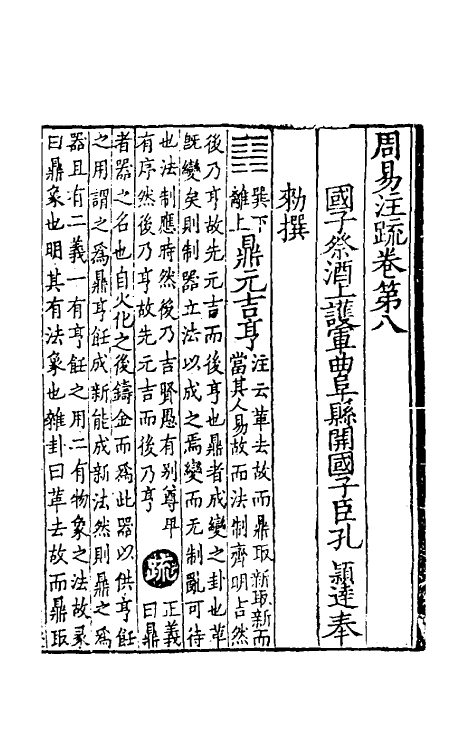 周易注疏卷第八
國子祭酒上護軍曲阜縣開國子臣孔 穎達奉
勑撰
䷱ 巽下離上 鼎元吉亨 注云革去故而鼎取新取新而當其人易故而法制齊明吉然
後乃亨故先元吉而後亨也鼎者成變之卦也革
旣變矣則制器立法以成之焉變而无制亂可待
也法制應時然後乃吉賢愚有别尊卑
有序然後乃亨故先元吉而後乃亨 疏 正義曰鼎
者器之名也自火化之後鑄金而爲此器以供亨飪
之用謂之爲鼎亨飪成新能成新法然則鼎之爲
器且有二義一有亨飪之用二有物象之法故彖
曰鼎象也明其有法象也雜卦曰革去故而鼎取